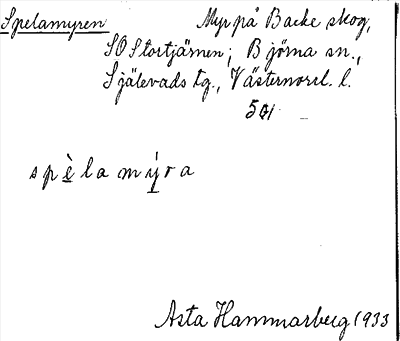 Spelamyren Myr på Backe skog,
SO Stortjärnen; Björna sn.,
Själevads tg., Västernorrl. l.
501
spèlamýra
Asta Hammarberg 1933